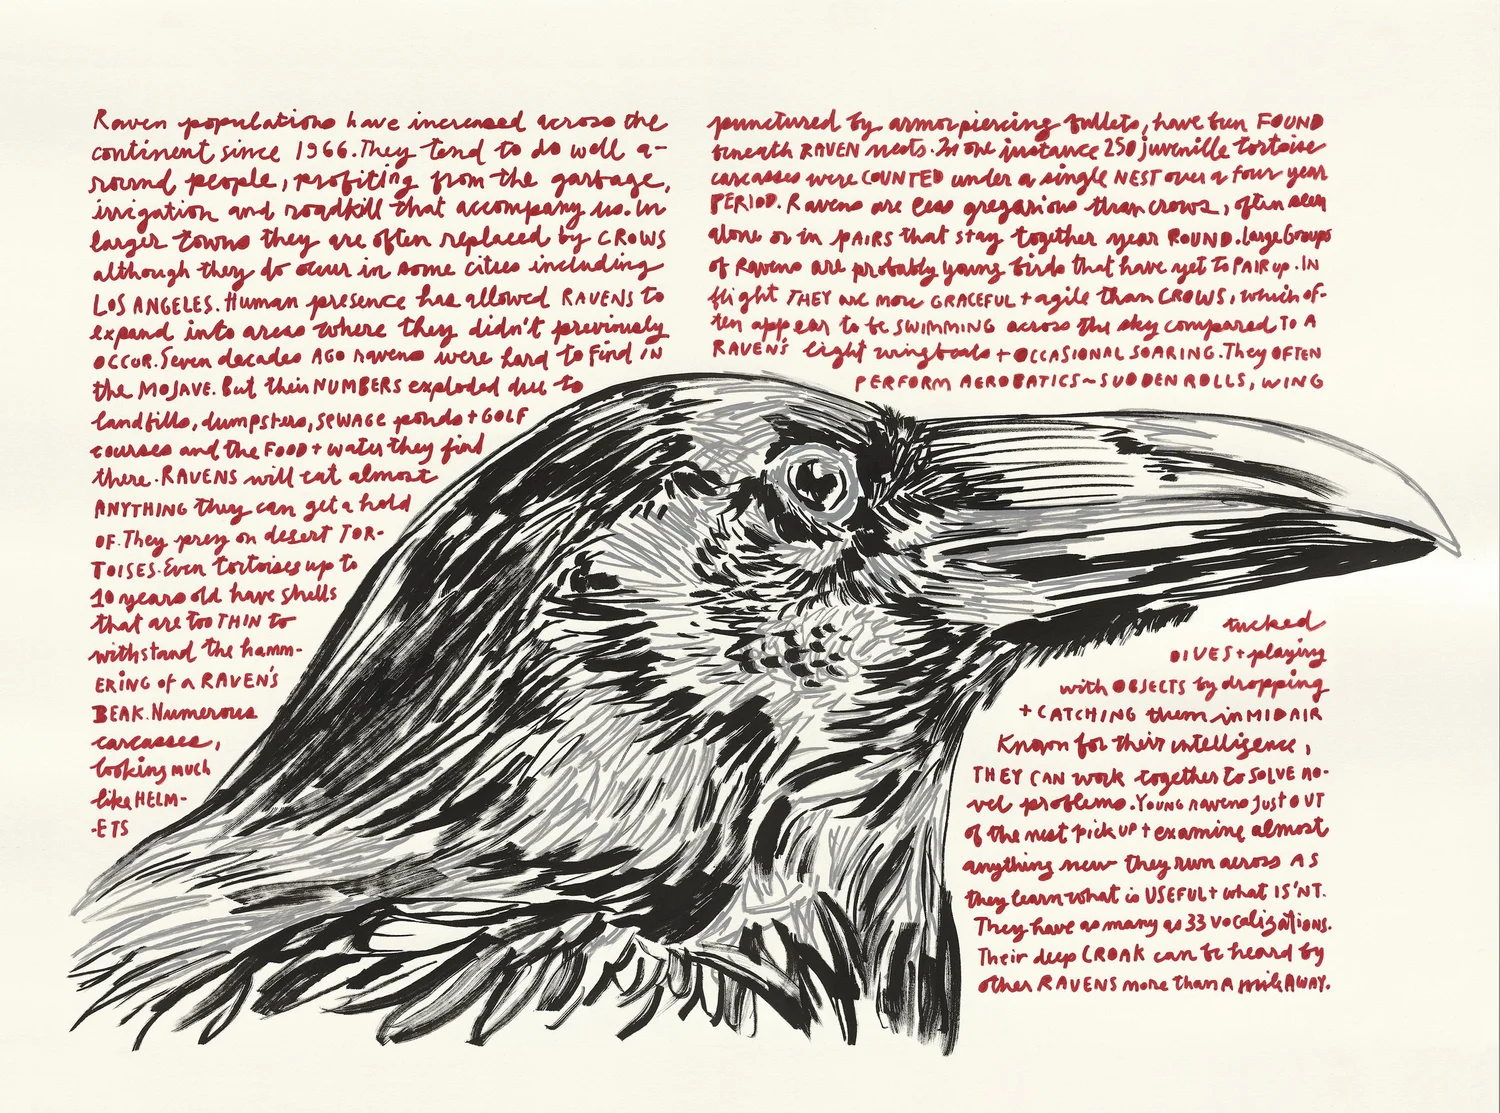 Raven populations have increased across the
continent since 1966. They tend to do well a-
round people, profiting from the garbage,
irrigation and roadkill that accompany us. In
larger towns they are often replaced by CROWS
although they do occur in some cities including
LOS ANGELES. Human presence has allowed RAVENS to
expand into areas where they didn't previously
OCCUR. Seven decades AGO ravens were hard to find IN
the MOJAVE. But their NUMBERS exploded due to
landfills, dumpsters, SEWAGE ponds + GOLF
courses and the FOOD + water they find
there. RAVENS will eat almost
ANYTHING they can get a hold
OF. They prey on desert TOR-
TOISES. Even tortoises up to
10 years old have shells
that are too THIN to
withstand the hamm-
ERING of a RAVEN'S
BEAK. Numerous
carcasses,
looking much
like HELM-
-ETS
punctured by armor piercing bullets, have been FOUND
beneath RAVEN nests. In one instance 250 juvenille tortoise
carcasses were COUNTED under a single NEST over a four year
PERIOD. Ravens are less gregarious than crows, often seen
alone or in PAIRS that stay together year ROUND. Large Groups
of Ravens are probably young birds that have yet to PAIR up. IN
flight THEY are more GRACEFUL + agile than CROWS, which of-
ten appear to be SWIMMING across the sky compared TO A
RAVEN'S light wingbeats + OCCASIONAL SOARING. They OFTEN
PERFORM AEROBATICS~SUDDEN ROLLS, WING
tucked
DIVES + playing
with OBJECTS by dropping
+ CATCHING them in MIDAIR
Known for their intelligence,
THEY CAN work together to SOLVE no-
vel problems. Young ravens just OUT
of the nest pick up + examine almost
anything new they run across AS
they learn what is USEFUL + what IS'NT.
They have as many as 33 vocalizations.
Their deep CROAK can be heard by
other RAVENS more than A mile AWAY.